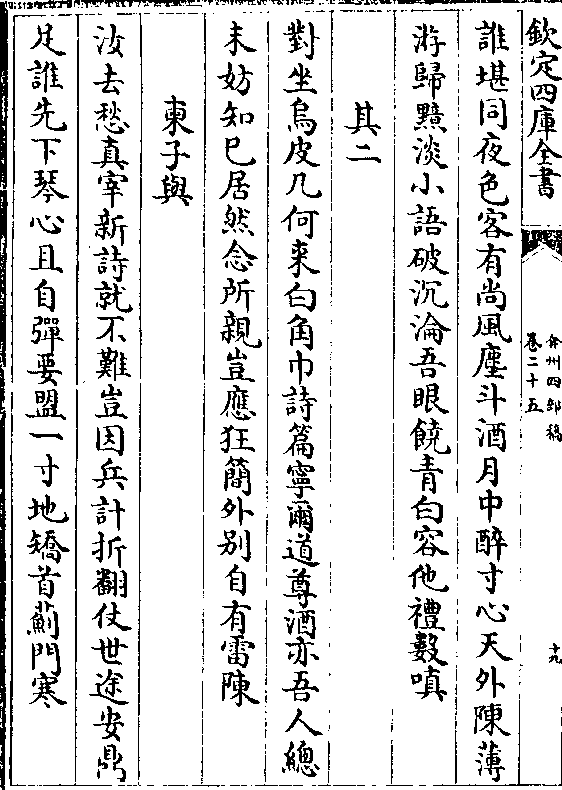 欽定四庫全書
弇州四部稿
卷二十五
十九
誰堪同夜色客有尚風塵斗酒月中醉寸心天外陳薄
游歸黯淡小語破沉淪吾眼饒青白容他禮數嗔
其二
對坐烏皮几何來白角巾詩篇寧爾道尊酒亦吾人總
未妨知已居然念所親豈應狂簡外别自有雷陳
柬子與
汝去愁真宰新詩就不難豈因兵計折翻仗世途安鼎
足誰先下琴心且自彈要盟一寸地矯首薊門寒